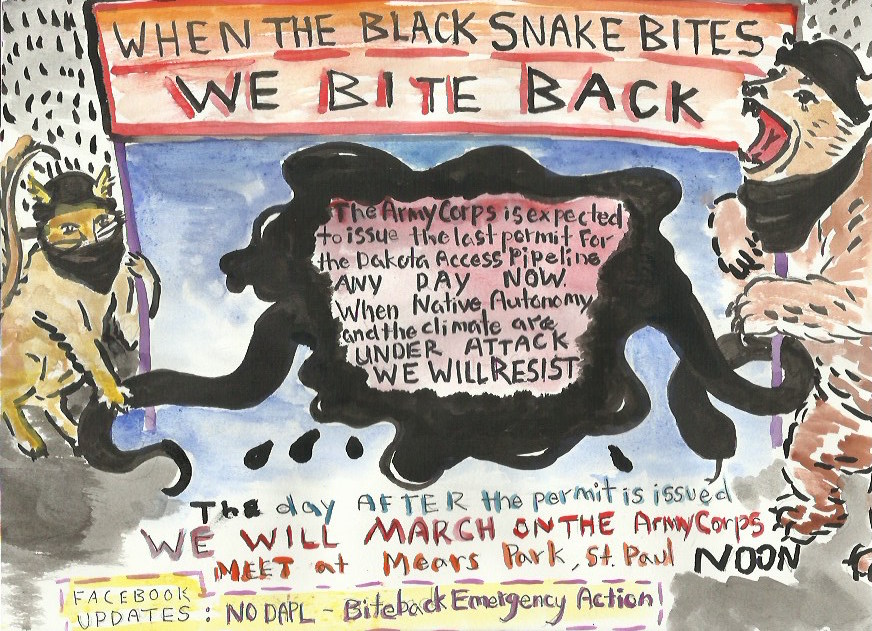 WHEN THE BLACK SNAKE BITES
WE BITE BACK
The Army Corps is expected
to issue the last permit For
the Dakota Access Pipeline
ANY DAY NOW.
When Native Autonomy
and the climate are
UNDER ATTACK
WE WILL RESIST
The day AFTER the permit is issued
WE WILL MARCH ON THE Army Corps
MEET at Mears Park, St. Paul NOON
FACEBOOK
UPDATES : NO DAPL - Biteback Emergency Action!